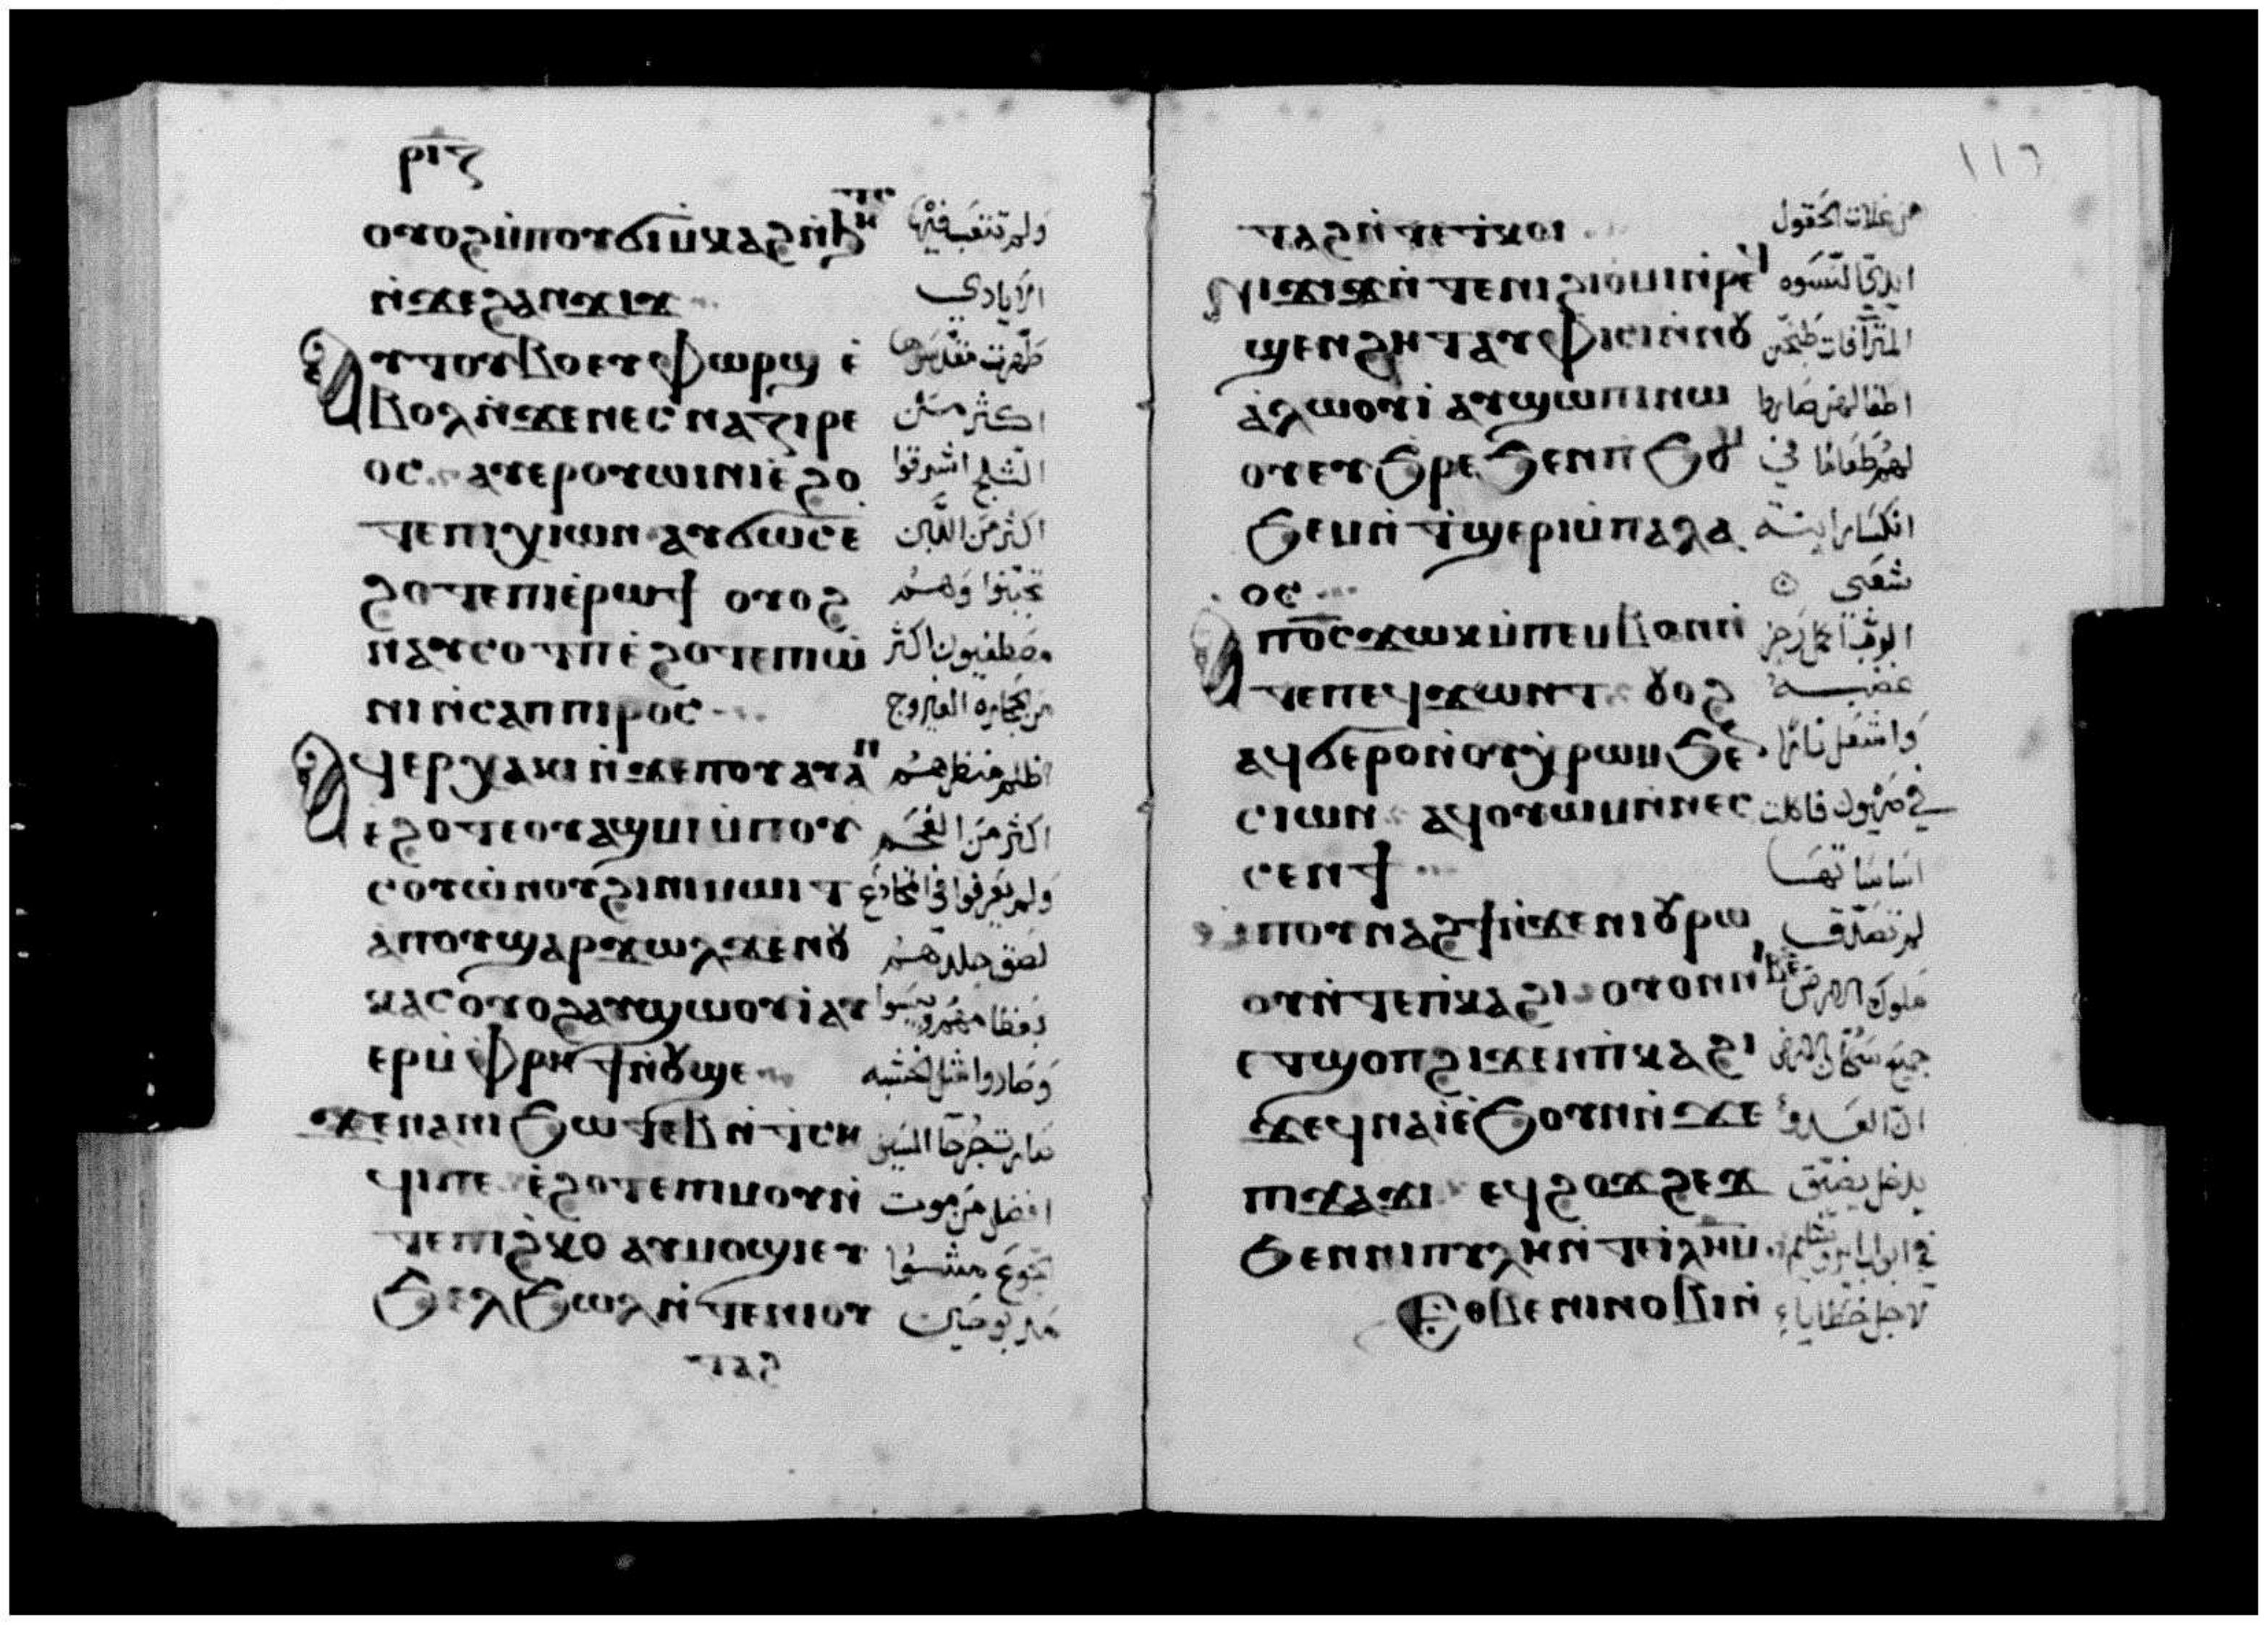 ⲣⲓⲍ
ⲟⲩⲟϩ ⲙ̀ⲡⲟⲩϭⲓⲙ̀ⲕⲁϩ ⲛ̀ϧⲏⲧⲥ ولم تتعب فيها
ⲛ̀ϫⲉϩⲁⲛϫⲓϫ الايادي
ⲁⲩⲧⲟⲩⲃⲟ ⲉⲩⲫⲱⲣϣ ⲉ̀ طهرت
ⲃⲟⲗ ⲛ̀ϫⲉⲛⲉⲥⲛⲁⲍⲓⲣⲉ اكثر من
ⲟⲥ ⲁⲩⲉⲣⲟⲩⲱⲓⲛⲓ ⲉ̀ϩⲟ الثلج اشرقوا
ⲧⲉ ⲡⲓⲭⲓⲱⲛ ⲁⲩϭⲱⲥ ⲉ̀ اكثر من اللبن
ϩⲟⲧⲉ ⲡⲓⲉ̀ⲣⲱϯ ⲟⲩⲟϩ تجبنوا وهم
ⲛⲁⲩⲥⲟⲧⲡ ⲉ̀ϩⲟⲧⲉ ⲡⲓⲱ̀ مصطفيون اكثر
ⲛⲓ ⲛ̀ⲥⲁⲡⲡⲓⲣⲟⲥ من حجارة الفيروج
ⲁϥⲉⲣⲭⲁⲕⲓ ⲛ̀ϫⲉⲡⲟⲩⲁⲩⲁⲛ اظلم منظرهم
ⲉϩⲟⲧⲉ ⲟⲩⲁϣⲙⲓ ⲙ̀ⲡⲟⲩ اكثر من الفحم
ⲥⲟⲩⲱⲛⲟⲩ ϩⲓ ⲛⲓⲙⲱⲓⲧ ولم يعرفوا في
ⲁⲡⲟⲩϣⲁⲣ ϫⲱⲗϫ ⲉⲛⲟⲩ لصق جلدهم
ⲕⲁⲥ ⲟⲩⲟϩ ⲁⲩϣⲱⲟⲩⲓ̀ ⲁⲩ
ⲉⲣⲙ̀ⲫⲣⲏϯ ⲛ̀ⲟⲩϣⲉ وصاروا مثل الخشبه
ϫⲉⲛⲁⲛⲓϧⲱⲧⲉⲃ ⲛ̀ⲧⲥⲏ
ϥⲓⲡⲉ ⲉ̀ϩⲟⲧⲉ ⲡⲙⲟⲩ ⲛ̀ افضل من موت
ⲧⲉ ⲡⲓϩ̀ⲕⲟ ⲁⲩⲙⲟϣⲓ ⲉⲩ الجوع مشوا
ϧⲉⲗϧⲱⲗ ⲛ̀ⲧⲉⲛⲓⲟⲩ مذبوحين
ϩⲁⲧ
من غلات الحقول ⲧⲁϩ ⲛ̀ⲧⲉ ⲧ̀ⲕⲟⲓ
ⲛⲓϫⲓϫ ⲛ̀ⲧⲉ ⲛⲓϩⲓⲟ̀ⲙⲓ ⲛ̀ⲣⲉϥ ايدي النسوه
ϣⲉⲛϩⲏⲧ ⲁⲩⲫⲓⲥⲓ ⲛ̀ⲛⲟⲩ المترآفات طبخن
ⲁ̀ⲗⲱⲟⲩⲓ̀ ⲁⲩϣⲱⲡⲓ ⲛⲱ اطفالهن صاروا
ⲟⲩ ⲉⲩϧ̀ⲣⲉ ϧⲉⲛ ⲡϧⲟⲙ لهم طعاما في
ϧⲉⲙ ⲛ̀ⲧϣⲉⲣⲓ ⲙ̀ⲡⲁⲗⲁ انكسار ابنة
ⲟⲥ شعبي
ⲁⲡⲟ̅ⲥ̅ ϫⲱⲕ ⲙ̀ⲡⲉⲙⲃⲟⲛ ⲛ̀ الرب اكمل رجز
ⲧⲉ ⲡⲉϥϫⲱⲛⲧ ⲟⲩⲟϩ غضبه
ⲁϥϭⲉⲣⲟ ⲛ̀ⲟⲩⲭⲣⲱⲙ ϧⲉⲛ واشعل نارا
ⲥⲓⲱⲛ ⲁϥⲟⲩⲱⲙ ⲛ̀ⲛⲉⲥ في صهيون فاكلت
ⲥⲉⲛϯ اساساتها
ⲙ̀ⲡⲟⲩⲛⲁϩϯ ⲛ̀ϫⲉⲛⲓⲟⲩⲣⲱ لم تصدق
ⲟⲩ ⲛ̀ⲧⲉ ⲡ̀ⲕⲁϩⲓ ⲟⲩⲟⲛ ⲛⲓⲃⲉⲛ ملوك الارض
ⲉⲧϣⲟⲡ ϩⲓϫⲉⲛ ⲡⲕⲁϩⲓ جميع سكان الارض
ϫⲉ ϥⲛⲁⲓ̀ ⲉ̀ϧⲟⲩⲛ ⲛ̀ϫⲉ ان العدو
ⲡⲓϫⲁϫⲓ ⲉϥϩⲟϫϩⲉϫ يدخل يضيق
ϧⲉⲛ ⲛⲓⲡⲩⲗⲏ ⲛ̀ⲧⲉ ⲓⲗⲏⲙ في ابواب يروشليم
ⲉⲑⲃⲉ ⲛⲓⲛⲟⲃⲓ ⲛ̀ لاجل خطايا